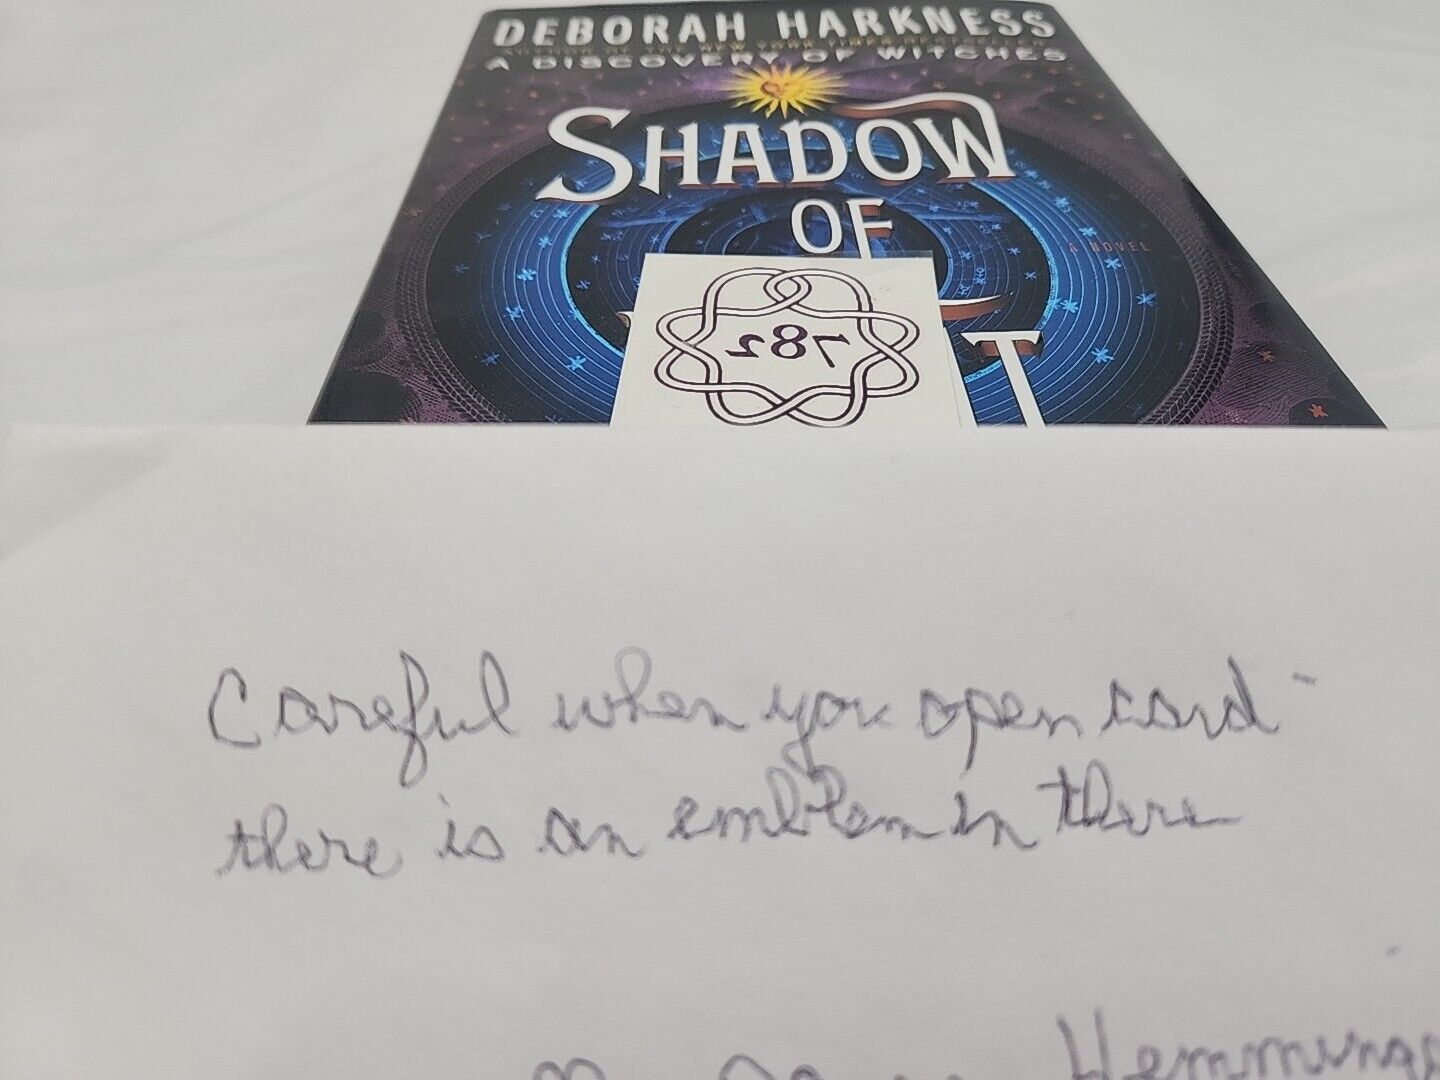 DEBORAH HARKNESS
AUTHOR OF THE NEW YORK TIMES BESTSELLER
A DISCOVERY OF WITCHES
SHADOW
OF
A NOVEL
T
782
Careful when you open card -
there is an emblem in there
Hemmings